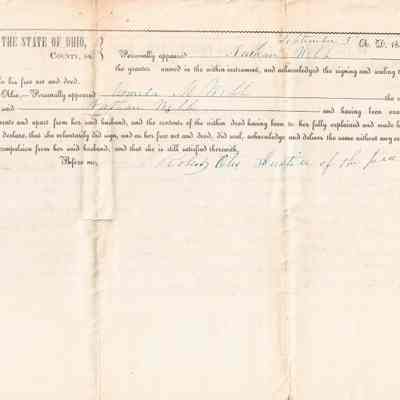 THE STATE OF OHIO, September 5 A. D. 18
COUNTY, ss. Personally appeared Nathan Webb
the grantor named in the within instrument, and acknowledged the signing and sealing
his free act and deed.
Also,—Personally appeared M Webb the
said Nathan Webb and having been exa
ments and apart from her said husband, and the contents of the within deed having been to her fully explained and made k
declare, that she voluntarily did sign, and as her free act and deed, did seal, acknowledge and deliver the same without any co
compulsion from her said husband, and that she is still satisfied therewith.
Before me, Justice of the pea